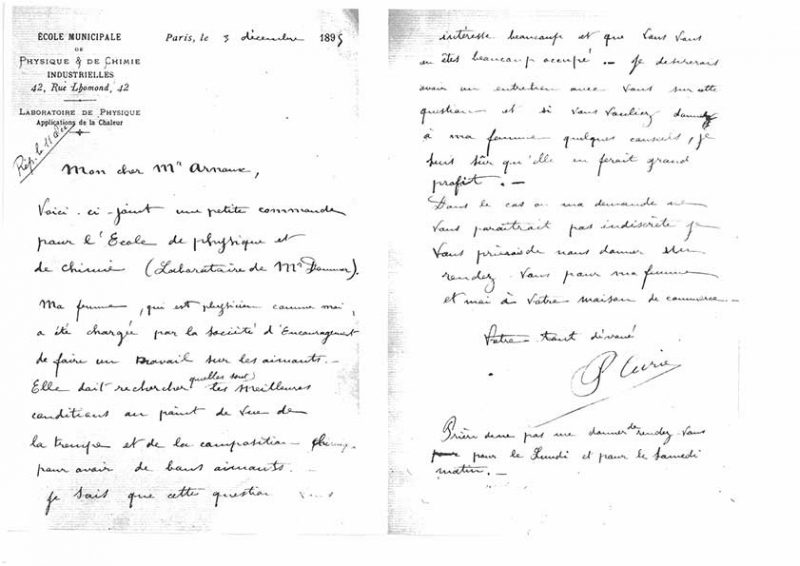 ÉCOLE MUNICIPALE
DE
PHYSIQUE & DE CHIMIE
INDUSTRIELLES
42, Rue Lhomond, 42
LABORATOIRE DE PHYSIQUE
Applications de la Chaleur
Paris, le 3 décembre 1895
Rép. le 11 déc
Mon cher Mr Arnoux,
Voici ci-joint une petite commande
pour l'Ecole de physique et
de chimie (Laboratoire de Mr Dommer).
Ma femme, qui est physicien comme moi,
a été chargée par la société d'Encouragement
de faire un travail sur les aimants. —
Elle doit rechercher quelles sont les meilleures
conditions au point de vue de
la trempe et de la composition
pour avoir de bons aimants. —
Je sais que cette question vous
intéresse beaucoup et que vous vous
en êtes beaucoup occupé. — Je desirerais
avoir un entretien avec vous sur cette
question et si vous vouliez donner
à ma femme quelques conseils, je
suis sûr qu'elle en ferait grand
profit. —
Dans le cas où ma demande ne
vous paraîtrait pas indiscrète je
vous prierais de nous donner un
rendez-vous pour ma femme
et moi à votre maison de commerce. —
Votre tout dévoué
P Curie
Prière de ne pas me donner de rendez-vous
pour le Lundi et pour le Samedi
matin. —